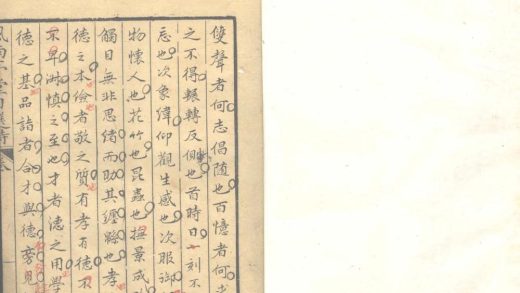 雙聲者何志倡随也百憶者何
之不得輾轉反側也首時日一刻不
忘也次象偉仰觀生感也次服御
物懷人也花竹也昆蟲也撫景成
觸目無非思緒而助其纏緜也孝
德之本儉者敬之質有孝有德不
不早淑慎之至也才者德之用學
德之基品詣者合才與德旁見
風雨